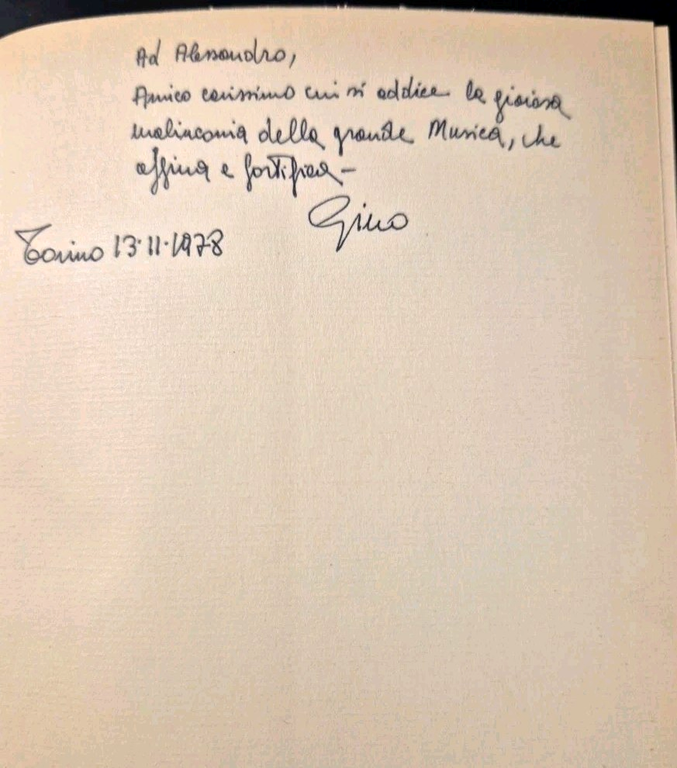 Ad Alessandro,
Amico carissimo cui si addice la gioiosa
malinconia della grande Musica, che
affina e fortifica -
Gino
Torino 13.11.1978